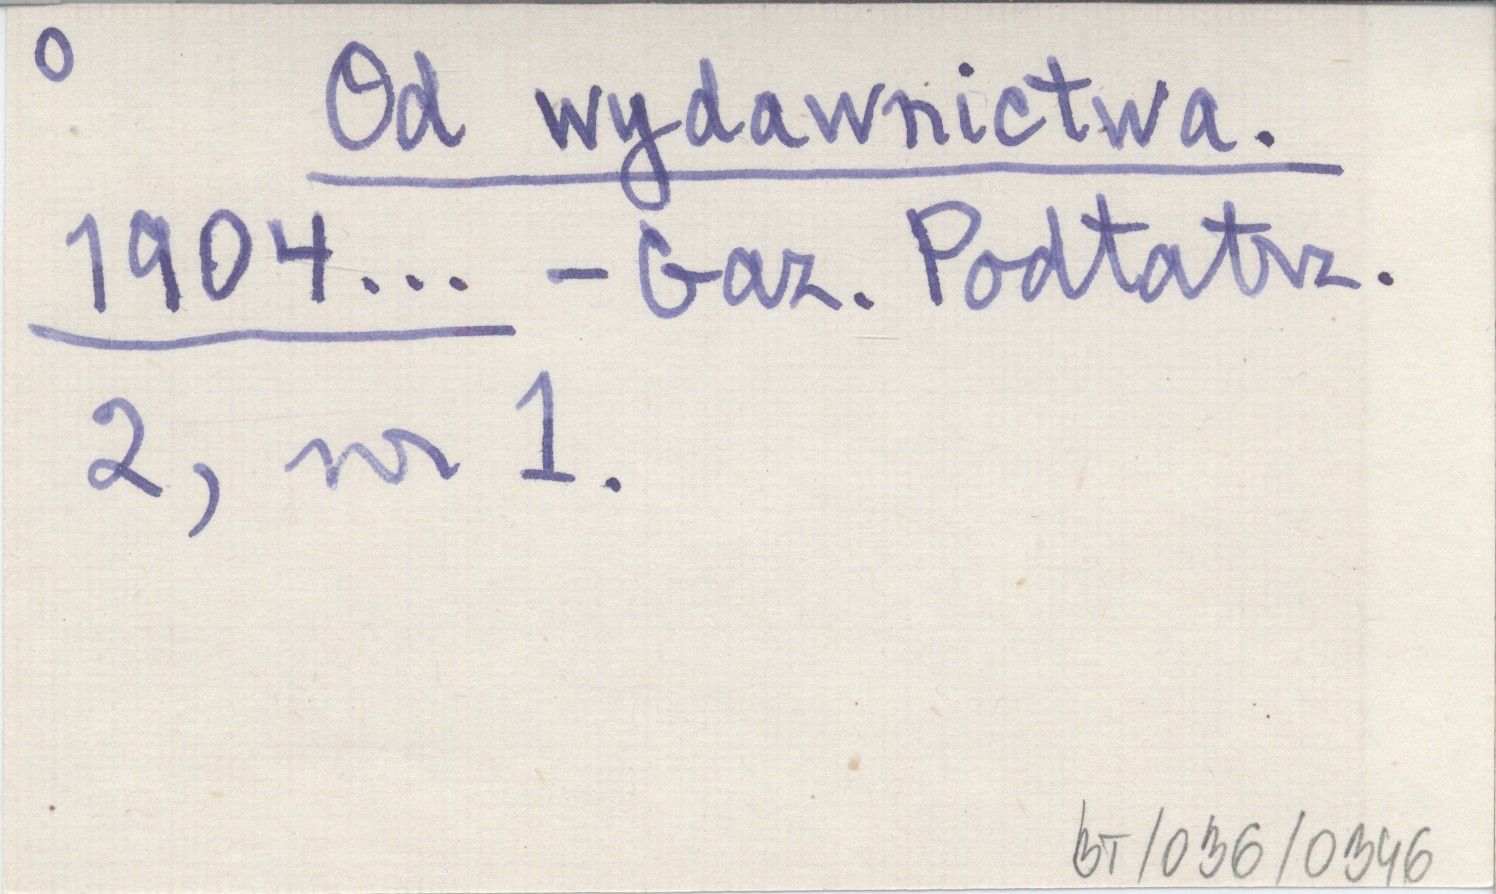 0
Od wydawnictwa.
1904... - Gaz. Podtatrz.
2, nr 1.
BT/036/0346